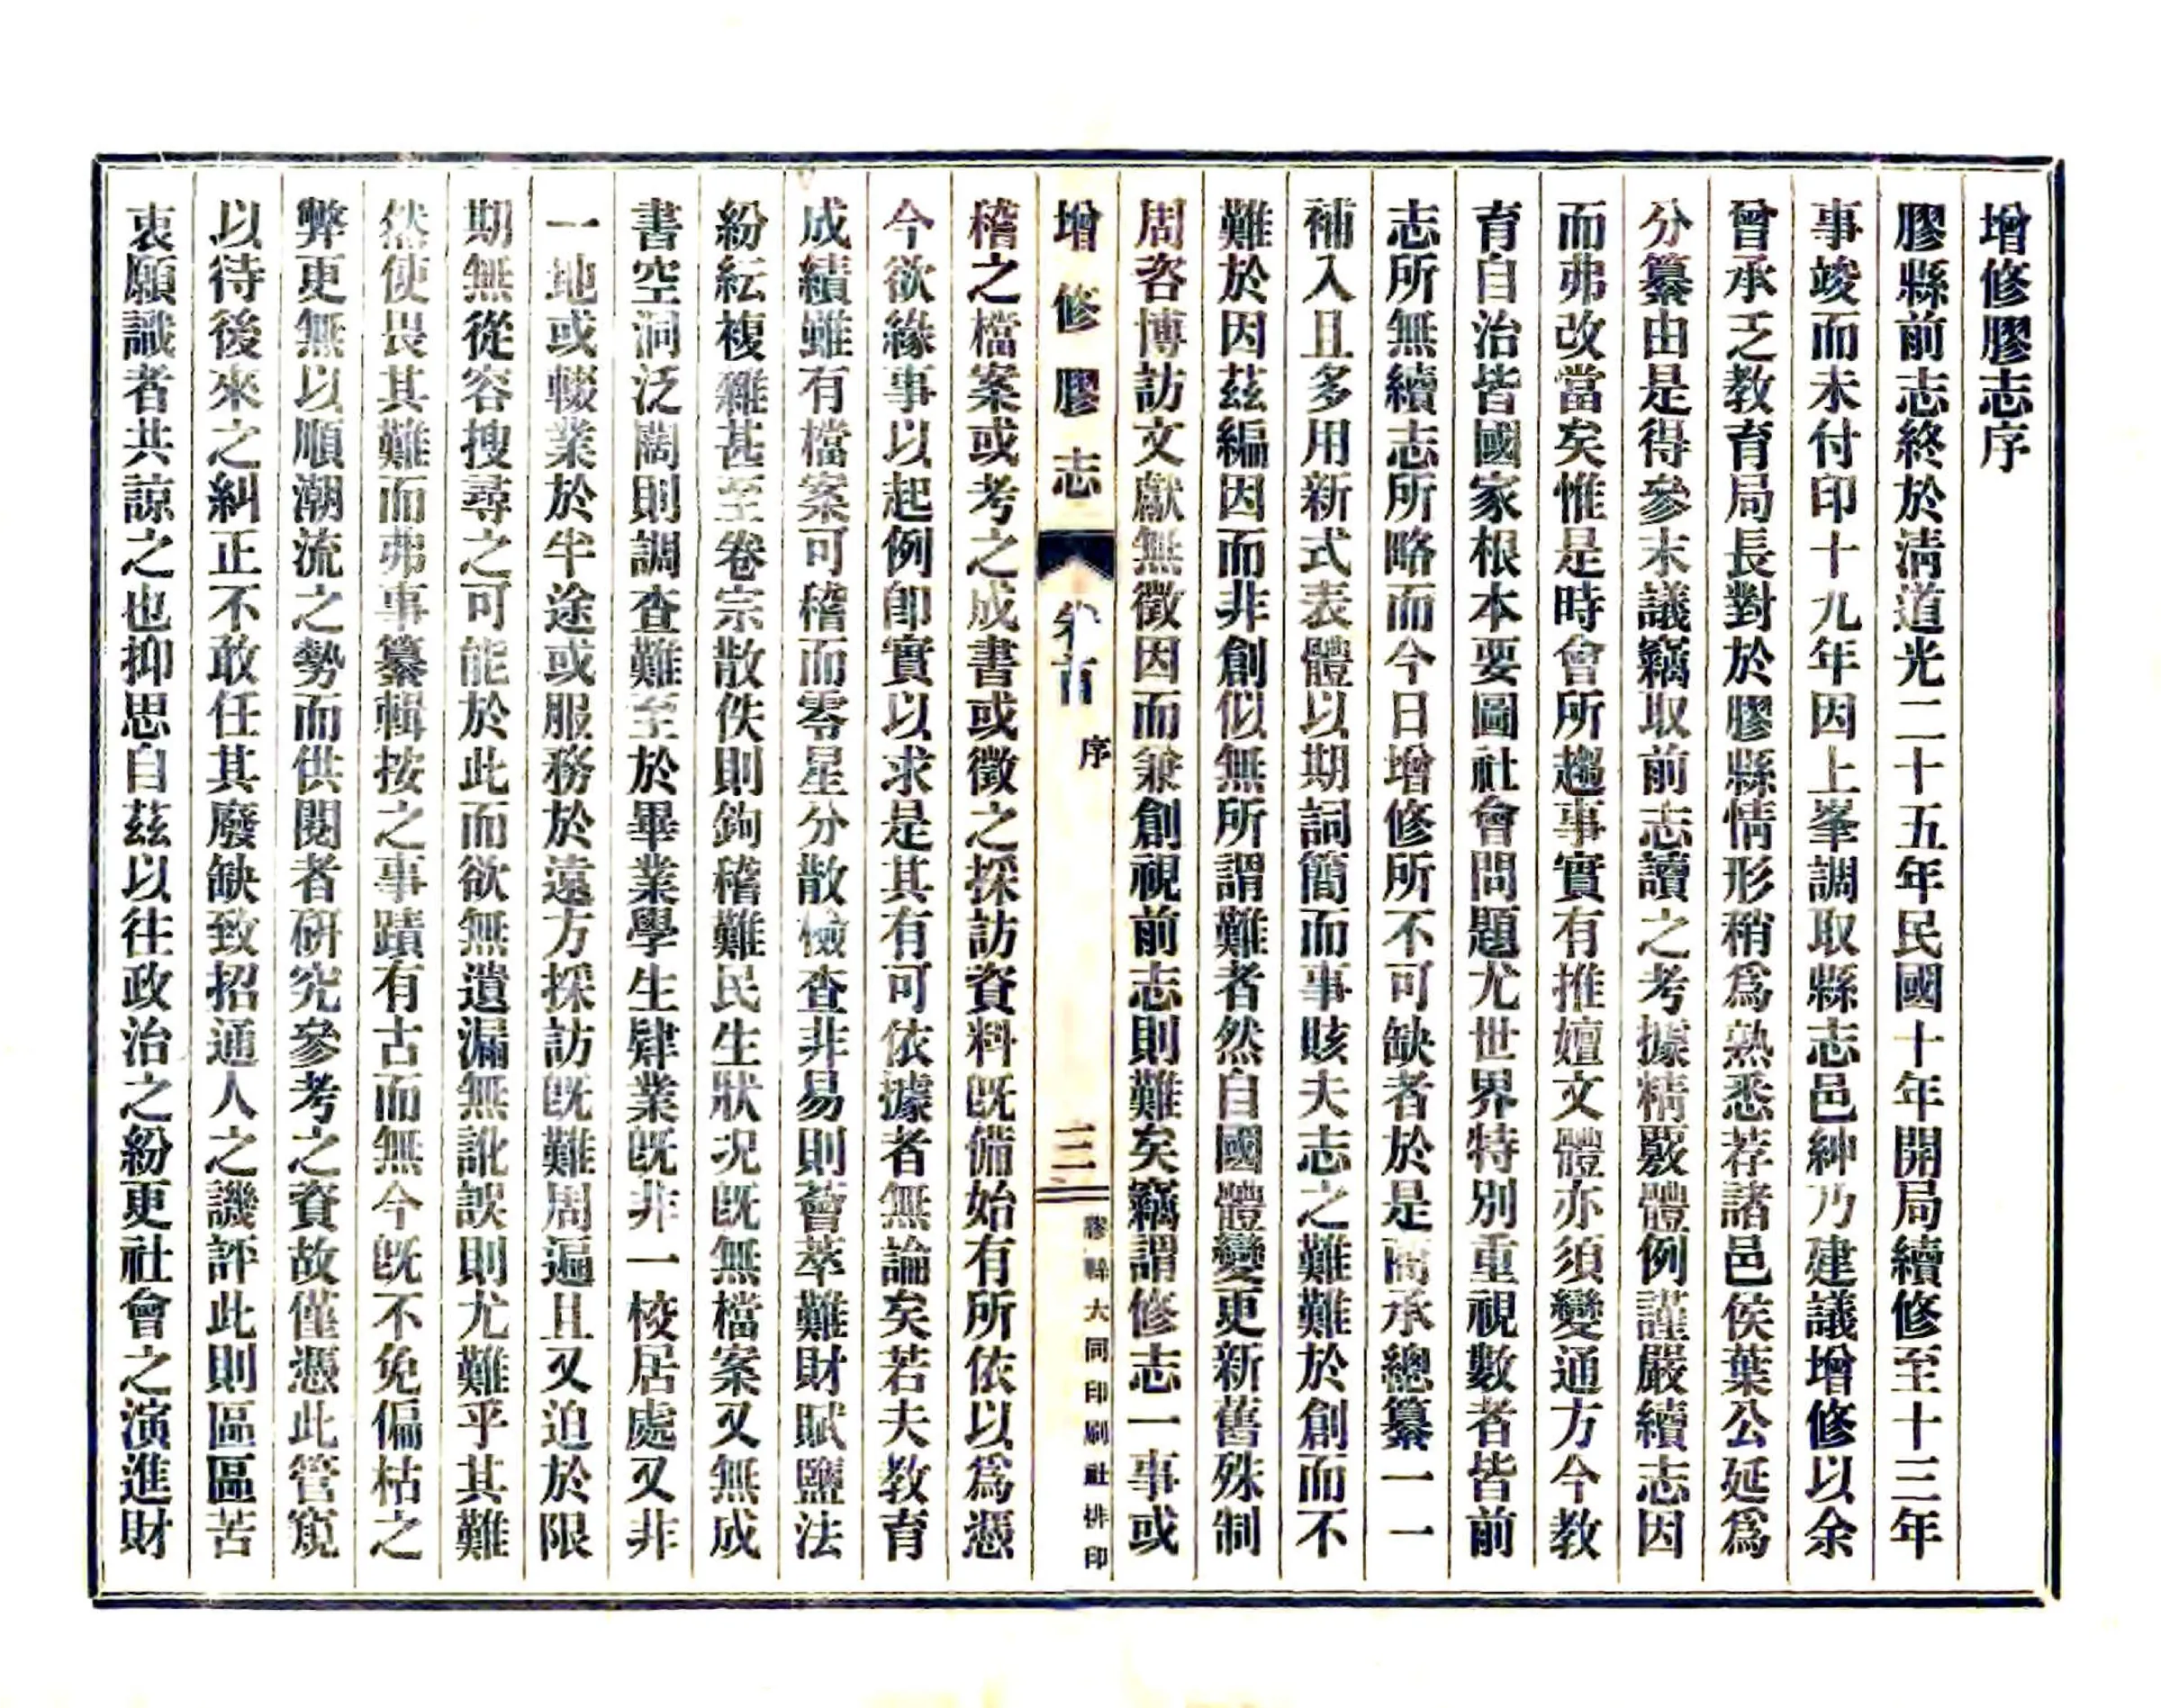 增修膠志序
膠縣前志終於淸道光二十五年民國十年開局續修至十三年
事竣而未付印十九年因上峯調取縣志邑紳乃建議增修以余
曾承乏教育局長對於膠縣情形稍爲熟悉荐諸邑侯葉公延爲
分纂由是得參末議竊取前志讀之考據精覈體例謹嚴續志因
而弗改當矣惟是時會所趨事實有推嬗文體亦須變通方今教
育自治皆國家根本要圖社會問題尤世界特別重視數者皆前
志所無續志所略而今日增修所不可缺者於是商承總纂一一
補入且多用新式表體以期詞簡而事賅夫志之難難於創而不
難於因茲編因而非創似無所謂難者然自國體變更新舊殊制
周咨博訪文獻無徵因而兼創視前志則難矣竊謂修志一事或
增修膠志 卷首 序 三 膠縣大同印刷社排印
稽之檔案或考之成書或徵之採訪資料旣備始有所依以爲憑
今欲緣事以起例卽實以求是其有可依據者無論矣若夫教育
成績雖有檔案可稽而零星分散檢查非易則薈萃難財賦鹽法
紛紜複雜甚至卷宗散佚則鉤稽難民生狀况旣無檔案又無成
書空洞泛闊則調查難至於畢業學生肄業旣非一校居處又非
一地或輟業於半途或服務於遠方採訪旣難周遍且又迫於限
期無從容搜尋之可能於此而欲無遺漏無訛誤則尤難乎其難
然使畏其難而弗事纂輯按之事蹟有古而無今旣不免偏枯之
弊更無以順潮流之勢而供閱者研究參考之資故僅憑此管窺
以待後來之糾正不敢任其廢缺致招通人之譏評此則區區苦
衷願識者共諒之也抑思自茲以往政治之紛更社會之演進財